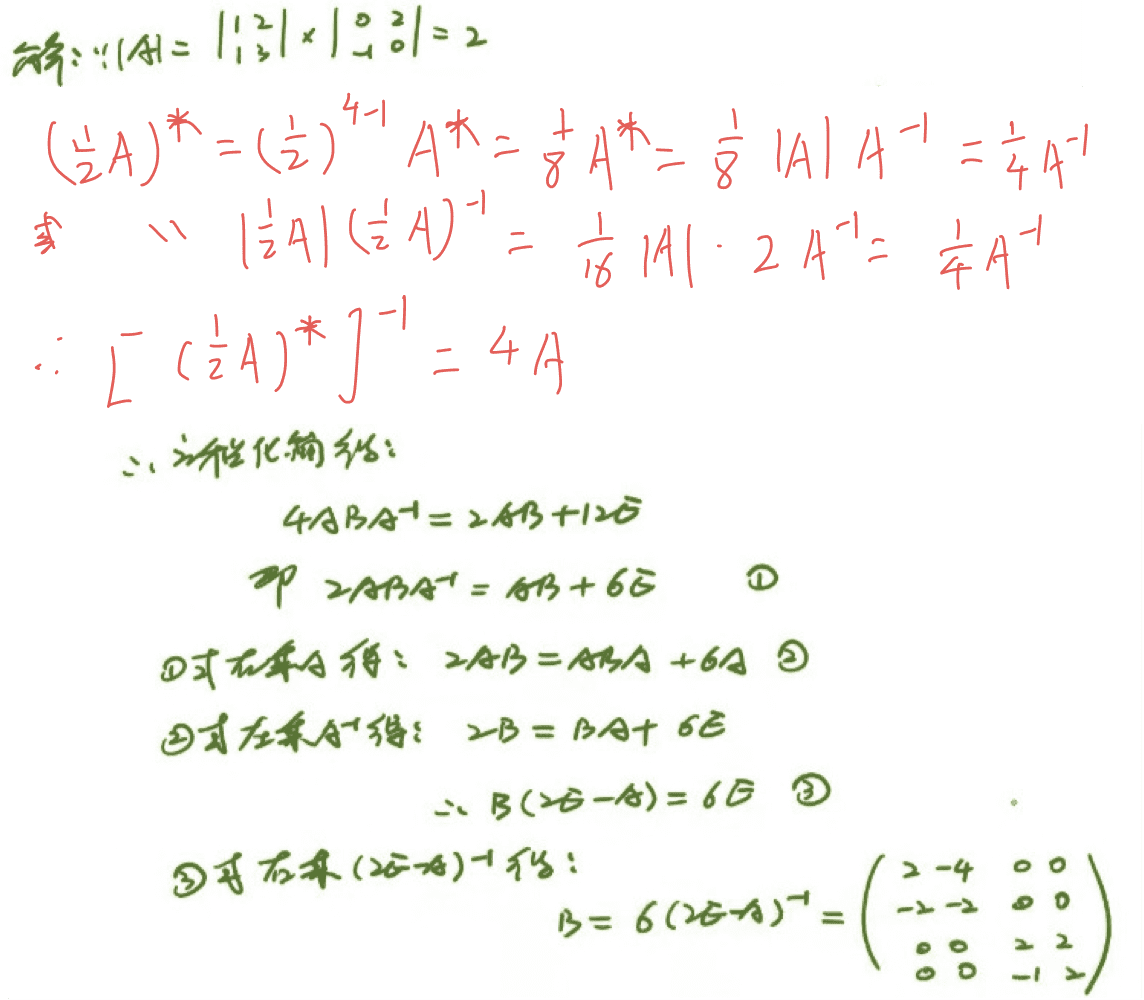 解：∵|A|= |1 2 1 3| × |0 2 -1 0| = 2
(½A)* = (½)^{4-1} A* = 1/8 A* = 1/8 |A| A^{-1} = 1/4 A^{-1}
或 〃 |½A| (½A)^{-1} = 1/16 |A| · 2 A^{-1} = 1/4 A^{-1}
∴ [(½A)*]^{-1} = 4A
∴ 方程化简得：
4ABA^{-1} = 2AB + 12E
即 2ABA^{-1} = AB + 6E ①
①式右乘A得： 2AB = ABA + 6A ②
②式左乘A^{-1}得： 2B = BA + 6E
∴ B(2E-A) = 6E ③
③式右乘(2E-A)^{-1}得：
B = 6(2E-A)^{-1} = ( 2 -4 0 0
-2 -2 0 0
0 0 2 2
0 0 -1 2 )